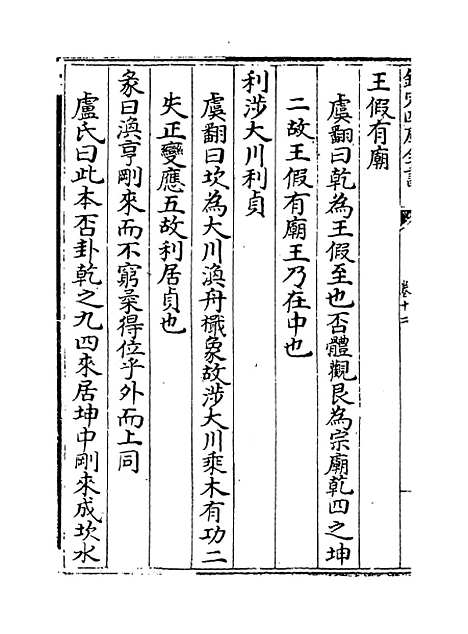 欽定四庫全書
卷十二
王假有廟
虞翻曰乾為王假至也否體觀艮為宗廟乾四之坤
二故王假有廟王乃在中也
利涉大川利貞
虞翻曰坎為大川渙舟檝象故涉大川乘木有功二
失正變應五故利居貞也
彖曰渙亨剛來而不窮柔得位乎外而上同
盧氏曰此本否卦乾之九四來居坤中剛來成坎水